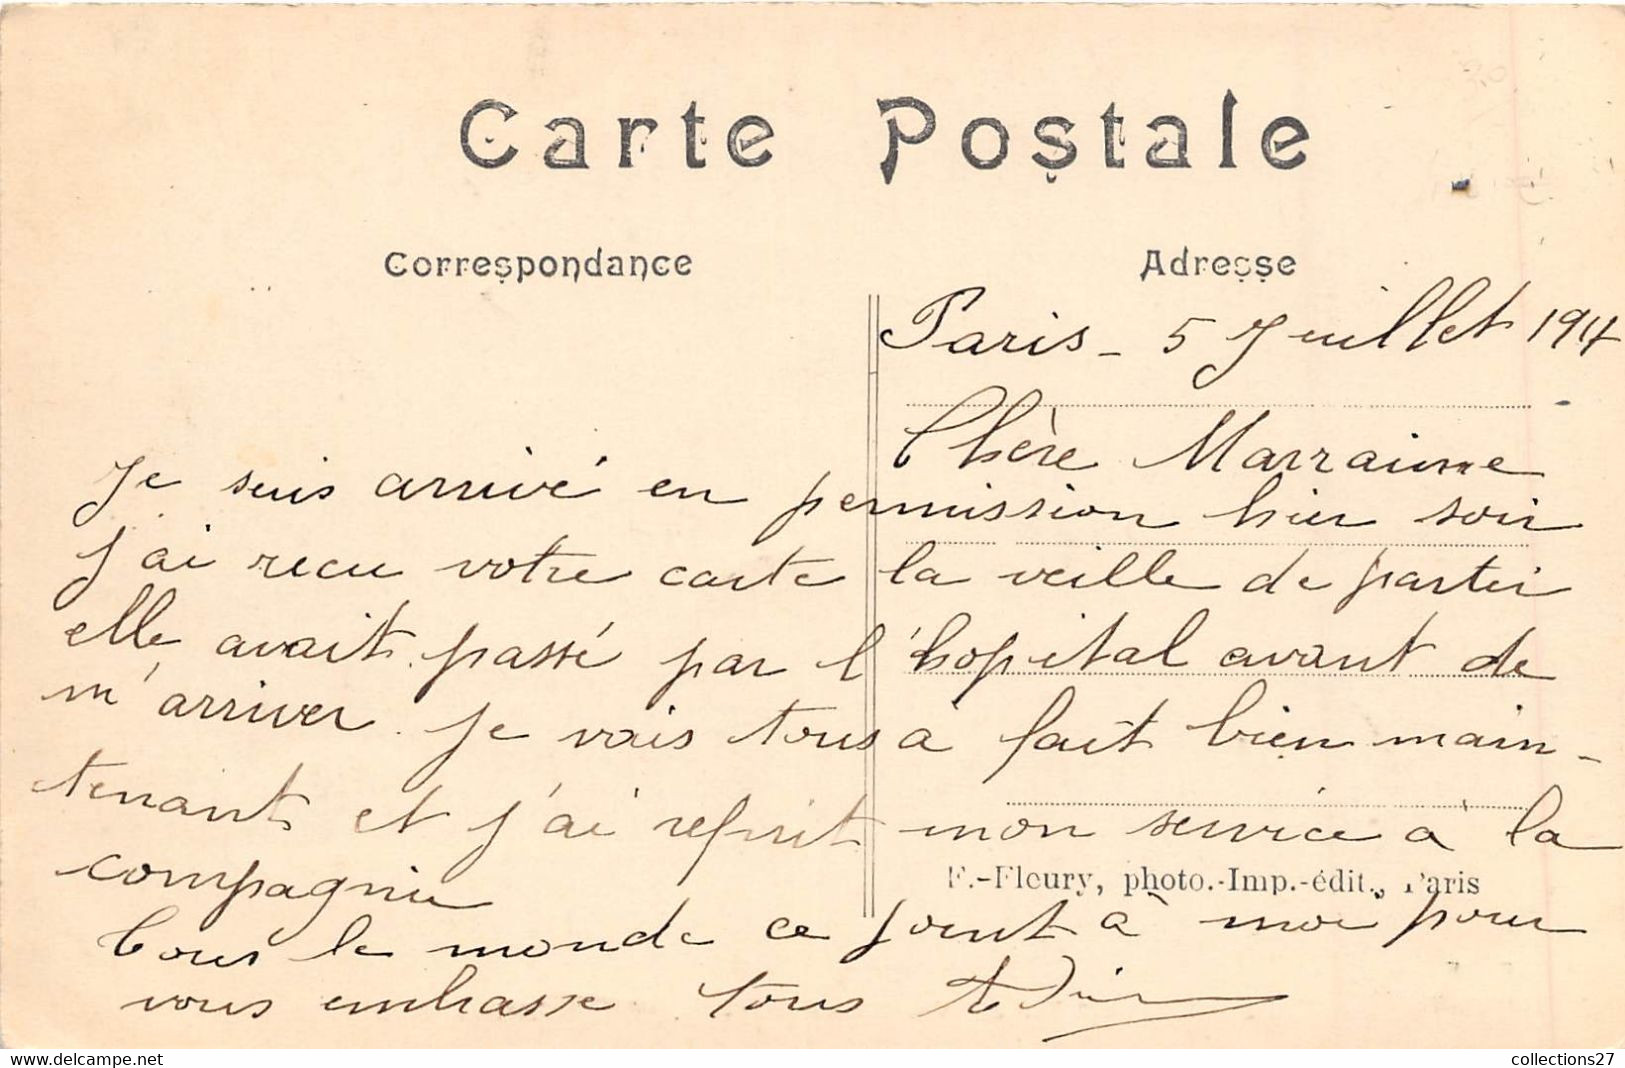 Carte Postale
Correspondance
Adresse
Paris - 5 Juillet 191
Chère Marraine
Je suis arrivé en permission hier soir
j'ai recu votre carte la veille de partir
elle avait passé par l'hopital avant de
m'arriver. Je vais tous a fait bien main-
tenant et j'ai reprit mon service à la
compagnie
F.-Fleury, photo.-Imp.-édit., Paris
Tous le monde ce joint à moi pour
vous embrasse tous
collections27